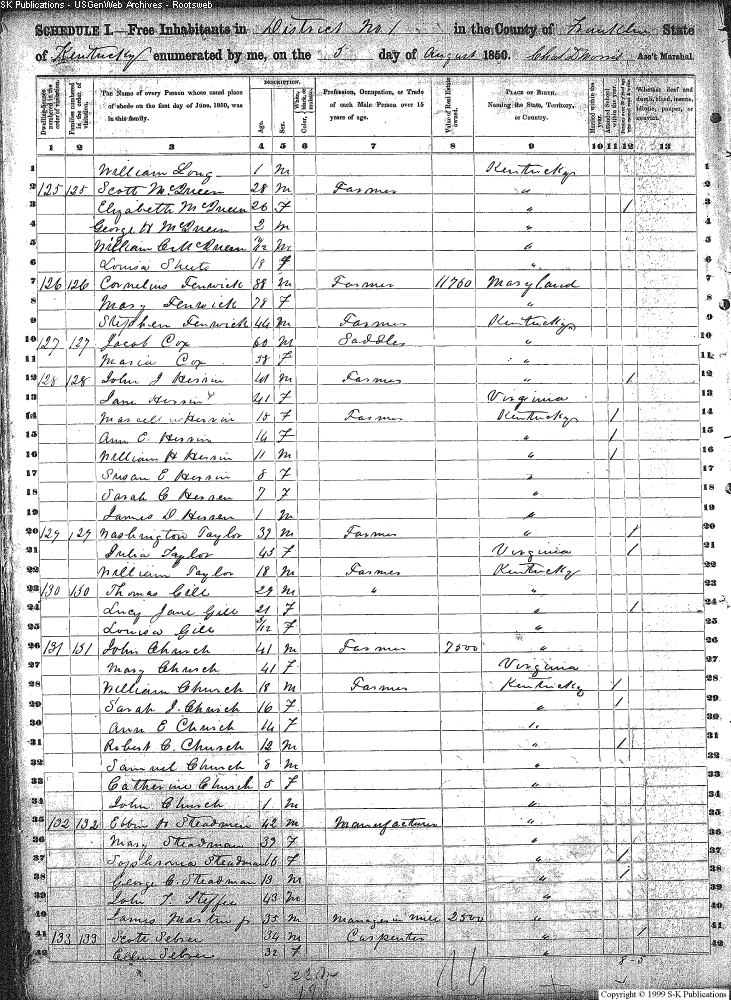 SK Publications - USGenWeb Archives - Rootsweb
SCHEDULE I.—Free Inhabitants in District No 1 in the County of Franklin State
of Kentucky enumerated by me, on the 5 day of August 1850. Chas D Morris Ass't Marshal.
Dwelling-houses numbered in the order of visitation. Families numbered in the order of visitation. The Name of every Person whose usual place of abode on the first day of June, 1850, was in this family. DESCRIPTION. Age. Sex. Color, White, black, or mulatto. Profession, Occupation, or Trade of each Male Person over 15 years of age. Value of Real Estate owned. PLACE OF BIRTH. Naming the State, Territory, or Country. Married within the year. Whether deaf and dumb, blind, insane, idiotic, pauper, or convict.
1 2 3 4 5 6 7 8 9 10 11 12 13
1 William Long 1 M Kentucky 1
2 125 125 Scott McQueen 28 M Farmer " 2
3 Elizabeth McQueen 26 F " / 3
4 George H McQueen 2 M " 4
5 William C McQueen /12 M " 5
6 Louisa 18 F " 6
7 126 126 Cornelius Fenwick 88 M Farmer 11760 Maryland 7
8 Mary Fenwick 78 F " 8
9 Stephen Fenwick 44 M Farmer Kentucky 9
10 127 127 Jacob Cox 60 M Saddler " 10
11 Maria Cox 58 F " 11
12 128 128 John J Herrin 41 M Farmer " / 12
13 Jane Herrin 41 F Virginia 13
14 Herrin 15 F Farmer Kentucky / 14
15 Ann E. Herrin 14 F " / 15
16 William H Herrin 11 M " / 16
17 Susan E Herrin 8 F " 17
18 Sarah C Herren 7 F " 18
19 James D Herren 1 M " 19
20 129 129 Washington Taylor 39 M Farmer " / 20
21 Julia Taylor 45 F Virginia / 21
22 William Taylor 18 M Farmer Kentucky 22
23 130 130 Thomas Gill 29 M " " 23
24 Lucy Jane Gill 21 F " / 24
25 Louisa Gill 3/12 F " 25
26 131 131 John Church 41 M Farmer 7500 " 26
27 Mary Church 41 F Virginia 27
28 William Church 18 M Farmer Kentucky / 28
29 Sarah J. Church 16 F " / 29
30 Ann E Church 14 F " 30
31 Robert C. Church 12 M " / 31
32 Samuel Church 8 M " 32
33 Catherine Church 5 F " 33
34 John Church 1 M " 34
35 132 132 Ebbin H Steadman 42 M Manufacturer " 35
36 Mary Steadman 39 F " 36
37 Sophronia Steadman 16 F " / 37
38 George C. Steadman 13 M " / 38
39 John T. Steffee 43 M " 39
40 James Martin jr 35 M Manager in mill 2500 " 40
41 133 133 Scott Sebree 34 M Carpenter " / 41
42 Ellen Sebree 32 F " 42
8-5
Copyright © 1999 S-K Publications